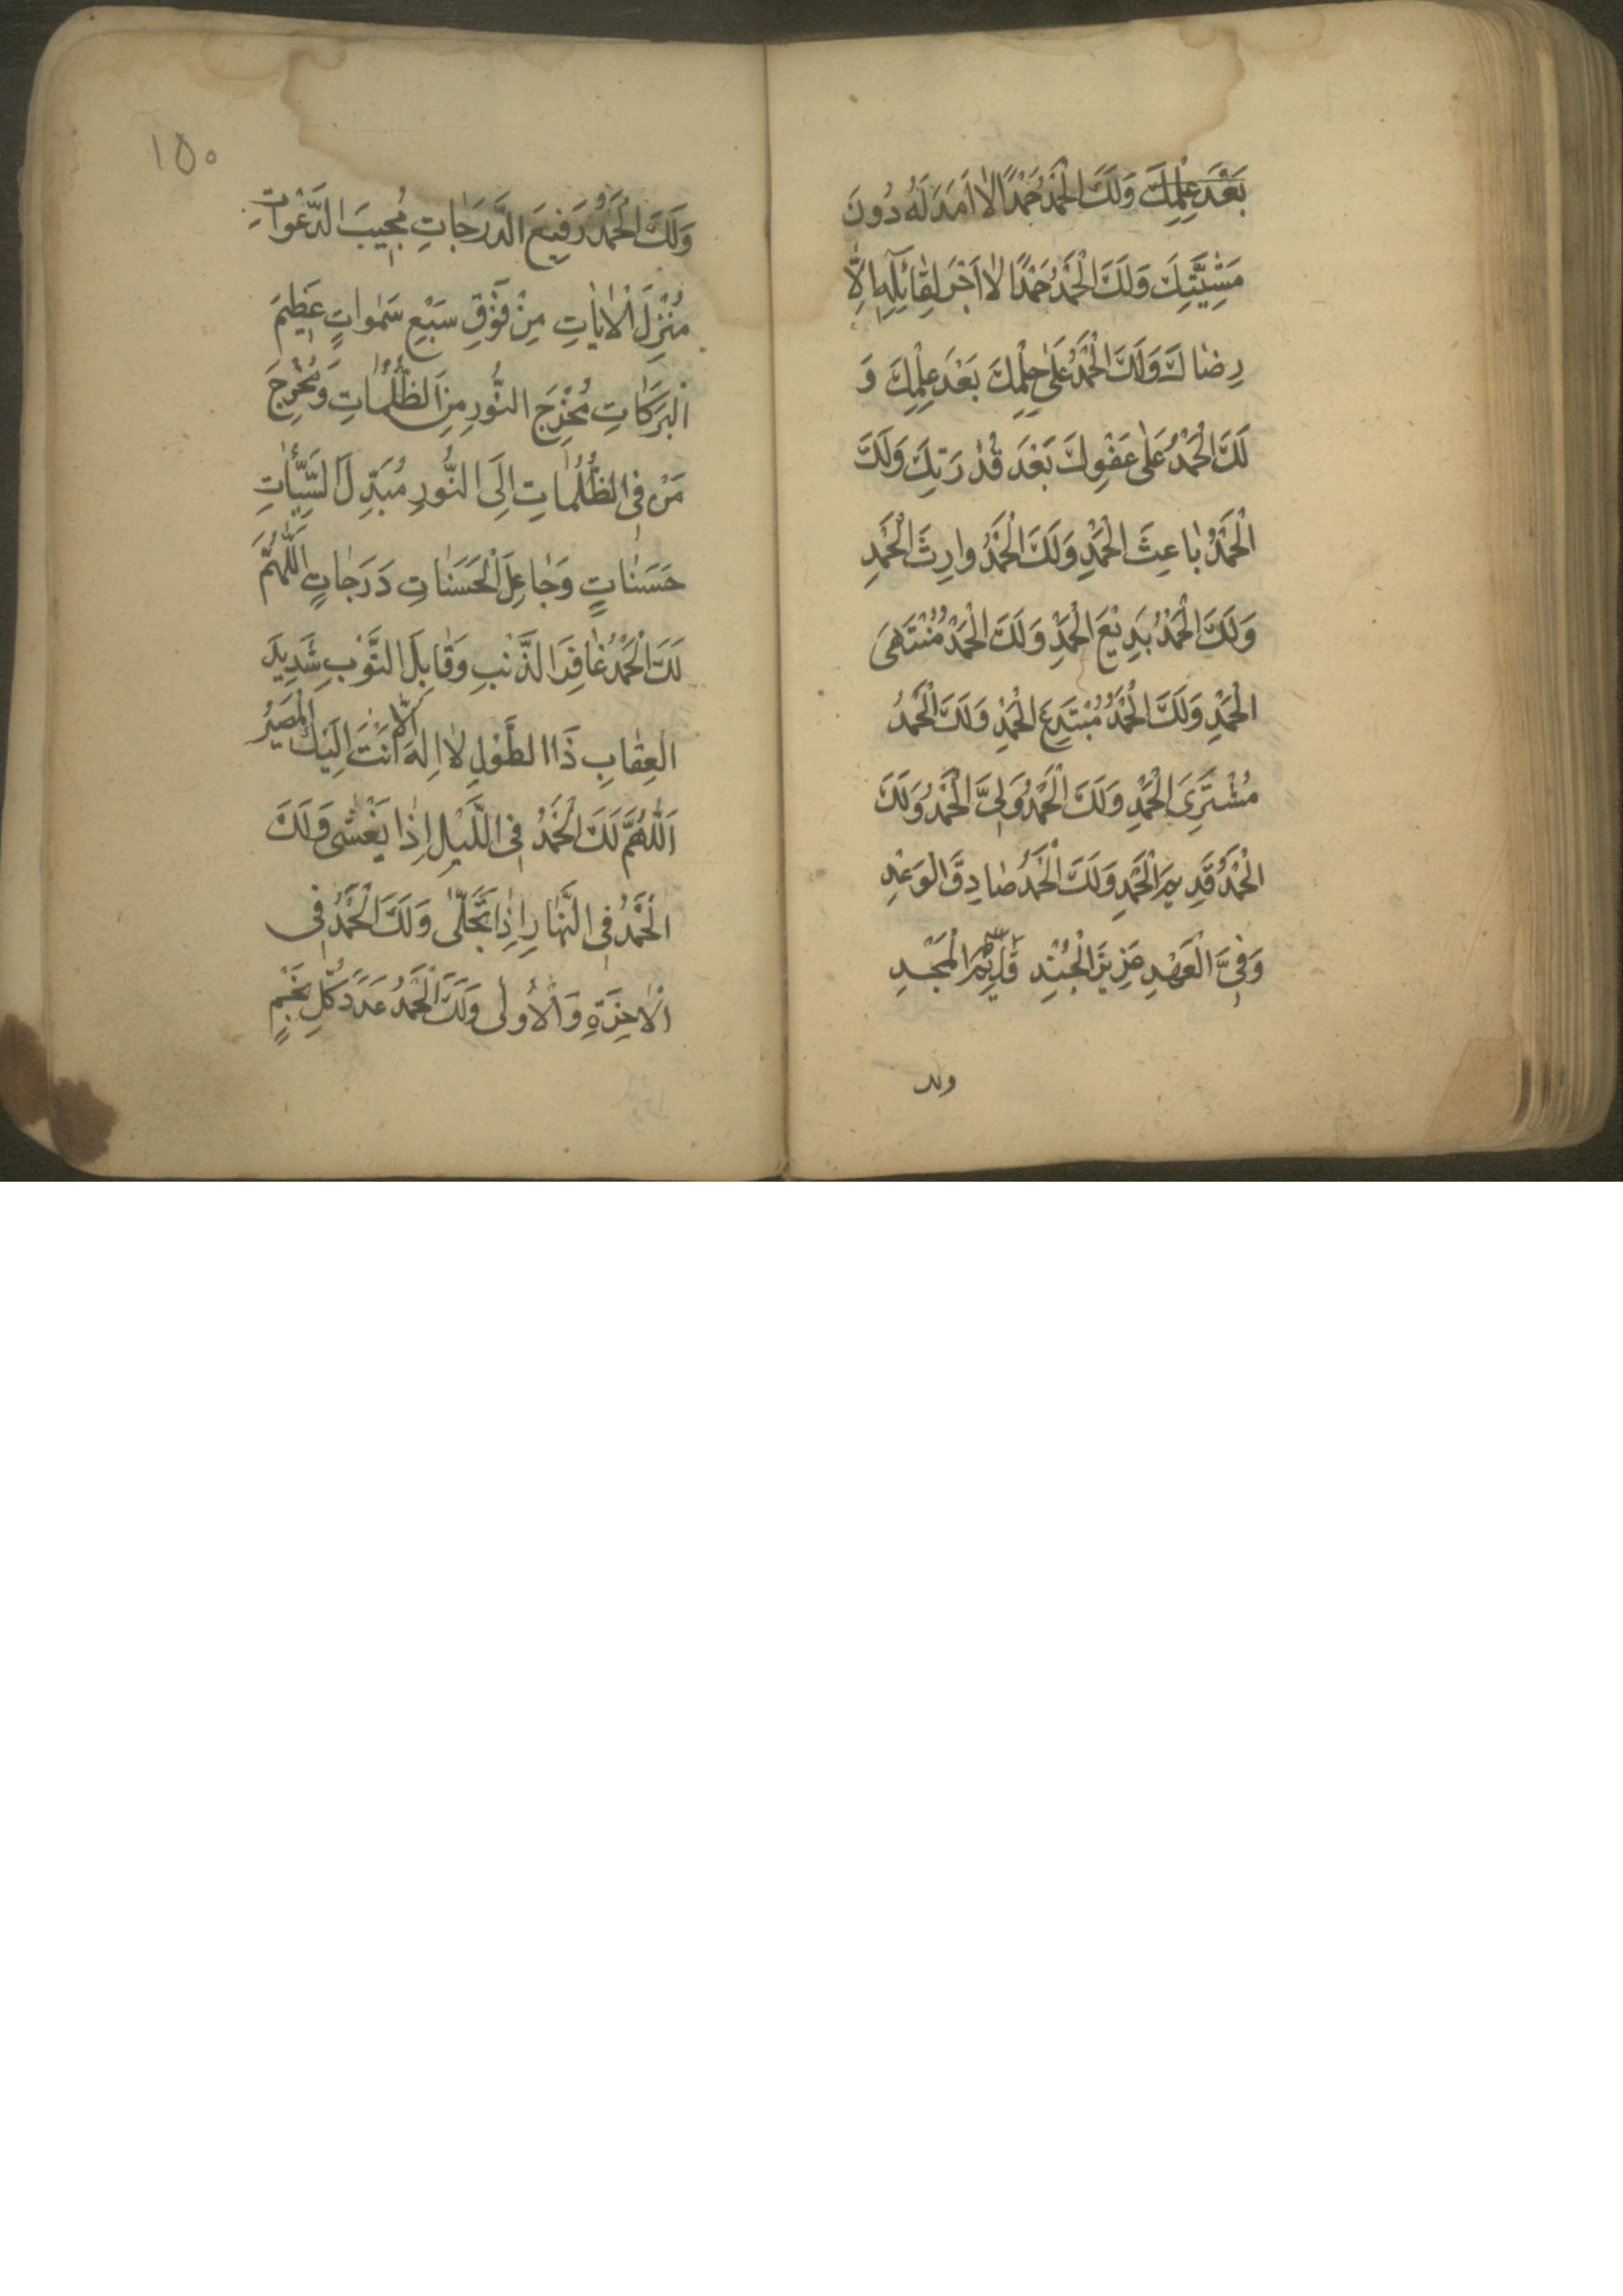 بَعْدَ عِلْمِكَ وَلَكَ الْحَمْدُ حَمْدًا لاٰ اَمَدَ لَهُ دُونَ
مَشِيَّتِكَ وَلَكَ الْحَمْدُ حَمْدًا لاٰ اَجْرَ لِقٰائِلِهِ اِلاّٰ
رِضٰاكَ وَلَكَ الْحَمْدُ عَلىٰ حِلْمِكَ بَعْدَ عِلْمِكَ وَ
لَكَ الْحَمْدُ عَلىٰ عَفْوِكَ بَعْدَ قُدْرَتِكَ وَلَكَ
الْحَمْدُ بٰاعِثَ الْحَمْدِ وَلَكَ الْحَمْدُ وارِثَ الْحَمْدِ
وَلَكَ الْحَمْدُ بَدِيْعَ الْحَمْدِ وَلَكَ الْحَمْدُ مُنْتَهىَ
الْحَمْدِ وَلَكَ الْحَمْدُ مُبْتَدِعَ الْحَمْدِ وَلَكَ الْحَمْدُ
مُشْتَرِىَ الْحَمْدِ وَلَكَ الْحَمْدُ وَلِىَّ الْحَمْدُ وَلَكَ
الْحَمْدُ قَدِيمَ الْحَمْدِ وَلَكَ الْحَمْدُ صٰادِقَ الْوَعْدِ
وَفِىَّ الْعَهْدِ عَزِيزَ الْجُنْدِ قٰائِمَ الْمَجْدِ
ولك
١٥٠
وَلَكَ الْحَمْدُ رَفِيعَ الدَّرَجٰاتِ مُجِيبَ الدَّعَوٰاتِ
مُنْزِلَ الْاٰيٰاتِ مِنْ فَوْقِ سَبْعِ سَمٰواتٍ عَظِيمَ
الْبَرَكٰاتِ مُخْرِجَ النُّورِ مِنَ الظُّلُمٰاتِ وَمُخْرِجَ
مَنْ فِى الظُّلُمٰاتِ اِلَى النُّورِ مُبَدِّلَ السَّيِّئٰاتِ
حَسَنٰاتٍ وَجٰاعِلَ الْحَسَنٰاتِ دَرَجٰاتٍ اَللّٰهُمَّ
لَكَ الْحَمْدُ غٰافِرَ الذَّنْبِ وَقٰابِلَ التَّوْبِ شَدِيدَ
الْعِقٰابِ ذَا الطَّوْلِ لاٰ اِلٰهَ اِلاّٰ اَنْتَ اِلَيْكَ الْمَصِيْرُ
اَللّٰهُمَّ لَكَ الْحَمْدُ فِى اللَّيْلِ اِذٰا يَغْشىٰ وَلَكَ
الْحَمْدُ فِى النَّهٰارِ اِذٰا تَجَلّىٰ وَلَكَ الْحَمْدُ فِى
الْاٰخِرَةِ وَالْاُولىٰ وَلَكَ الْحَمْدُ عَدَدَ كُلِّ نَجْمٍ